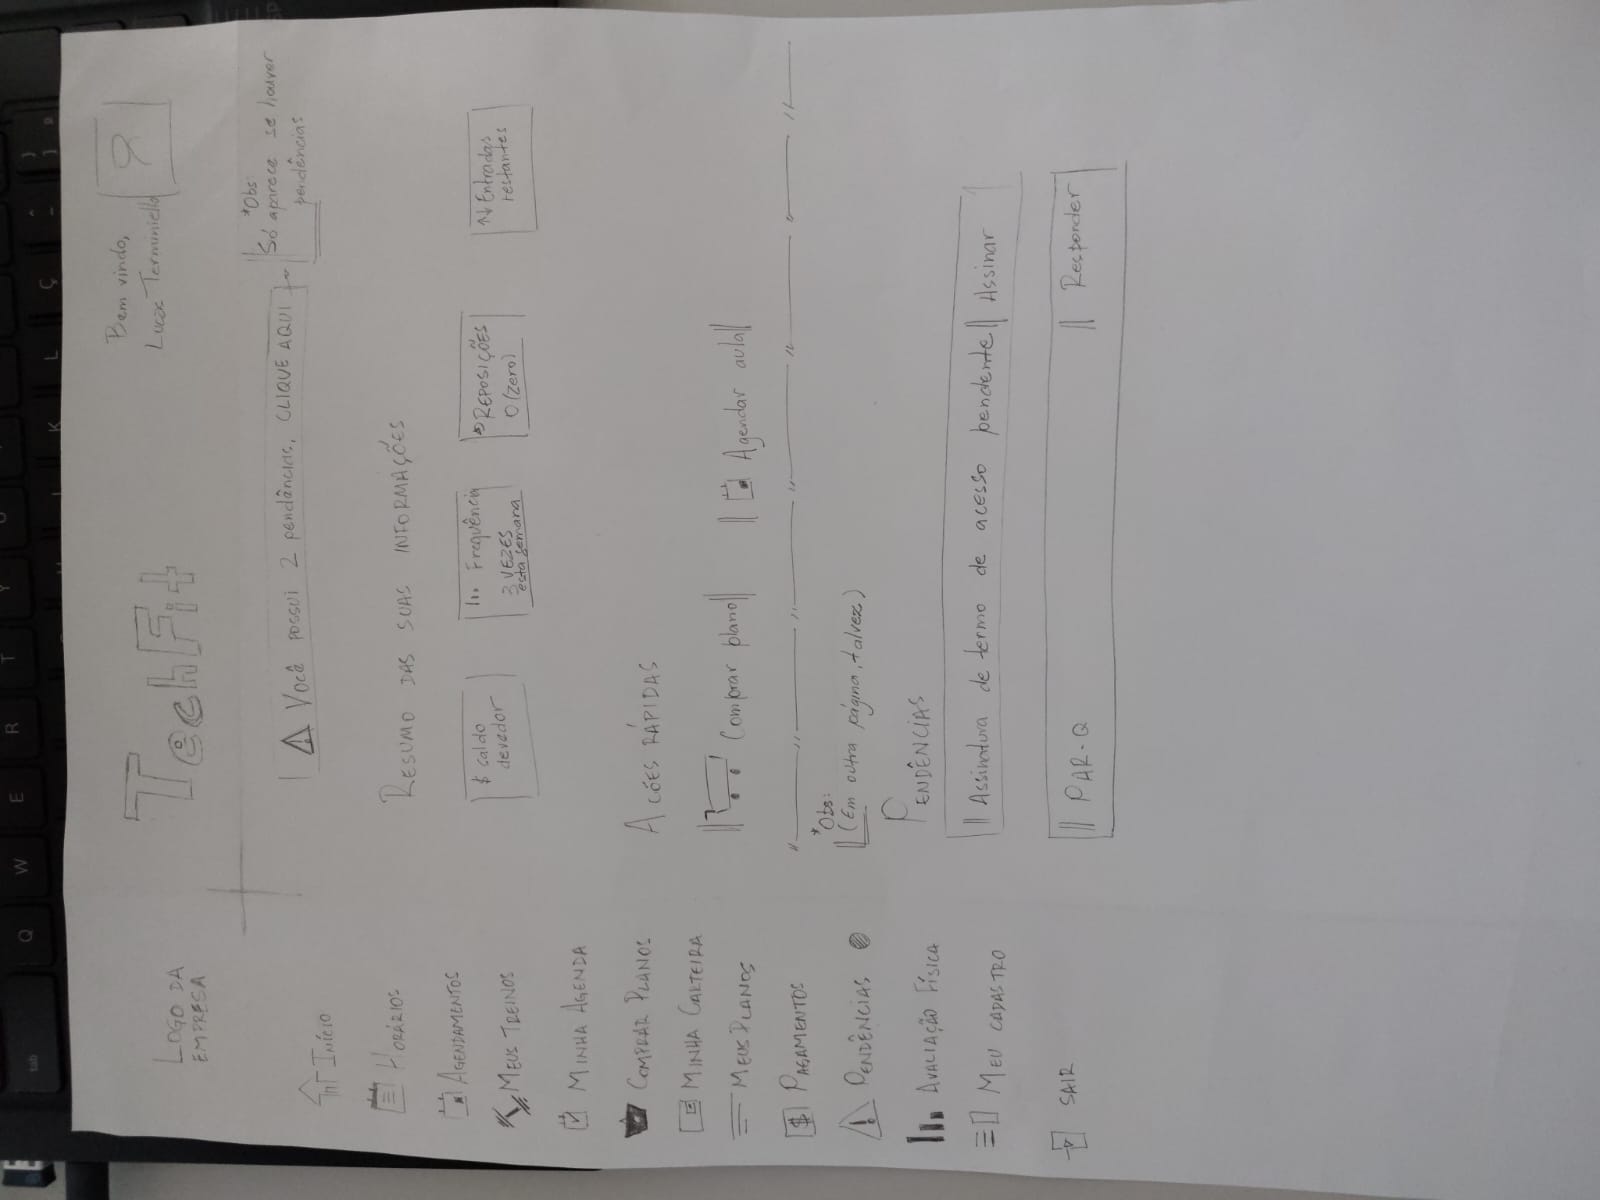 LOGO DA
EMPRESA
TechFit
Bem vindo,
Lucas Terminiello
INÍCIO
HORÁRIOS
AGENDAMENTOS
MEUS TREINOS
MINHA AGENDA
COMPRAR PLANOS
MINHA CARTEIRA
MEUS PLANOS
$ PAGAMENTOS
PENDÊNCIAS
AVALIAÇÃO FÍSICA
MEU CADASTRO
SAIR
VOCÊ POSSUI 2 pendâncias, CLIQUE AQUI
*Obs:
Só aparece se houver
pendências
RESUMO DAS SUAS INFORMAÇÕES
$ caldo
devedor
Frequência
3 VEZES
esta semana
REPOSIÇÕES
0 (zero)
↑↓ Entradas
restantes
AÇÕES RÁPIDAS
Comprar plano
Agendar aula
*Obs:
(Em outra página, talvez)
PENDÊNCIAS
Assinatura de termo de acesso pendente || Assinar
PAR-Q || Responder
tab
Q
W
E
R
T
Y
K
L
Ç